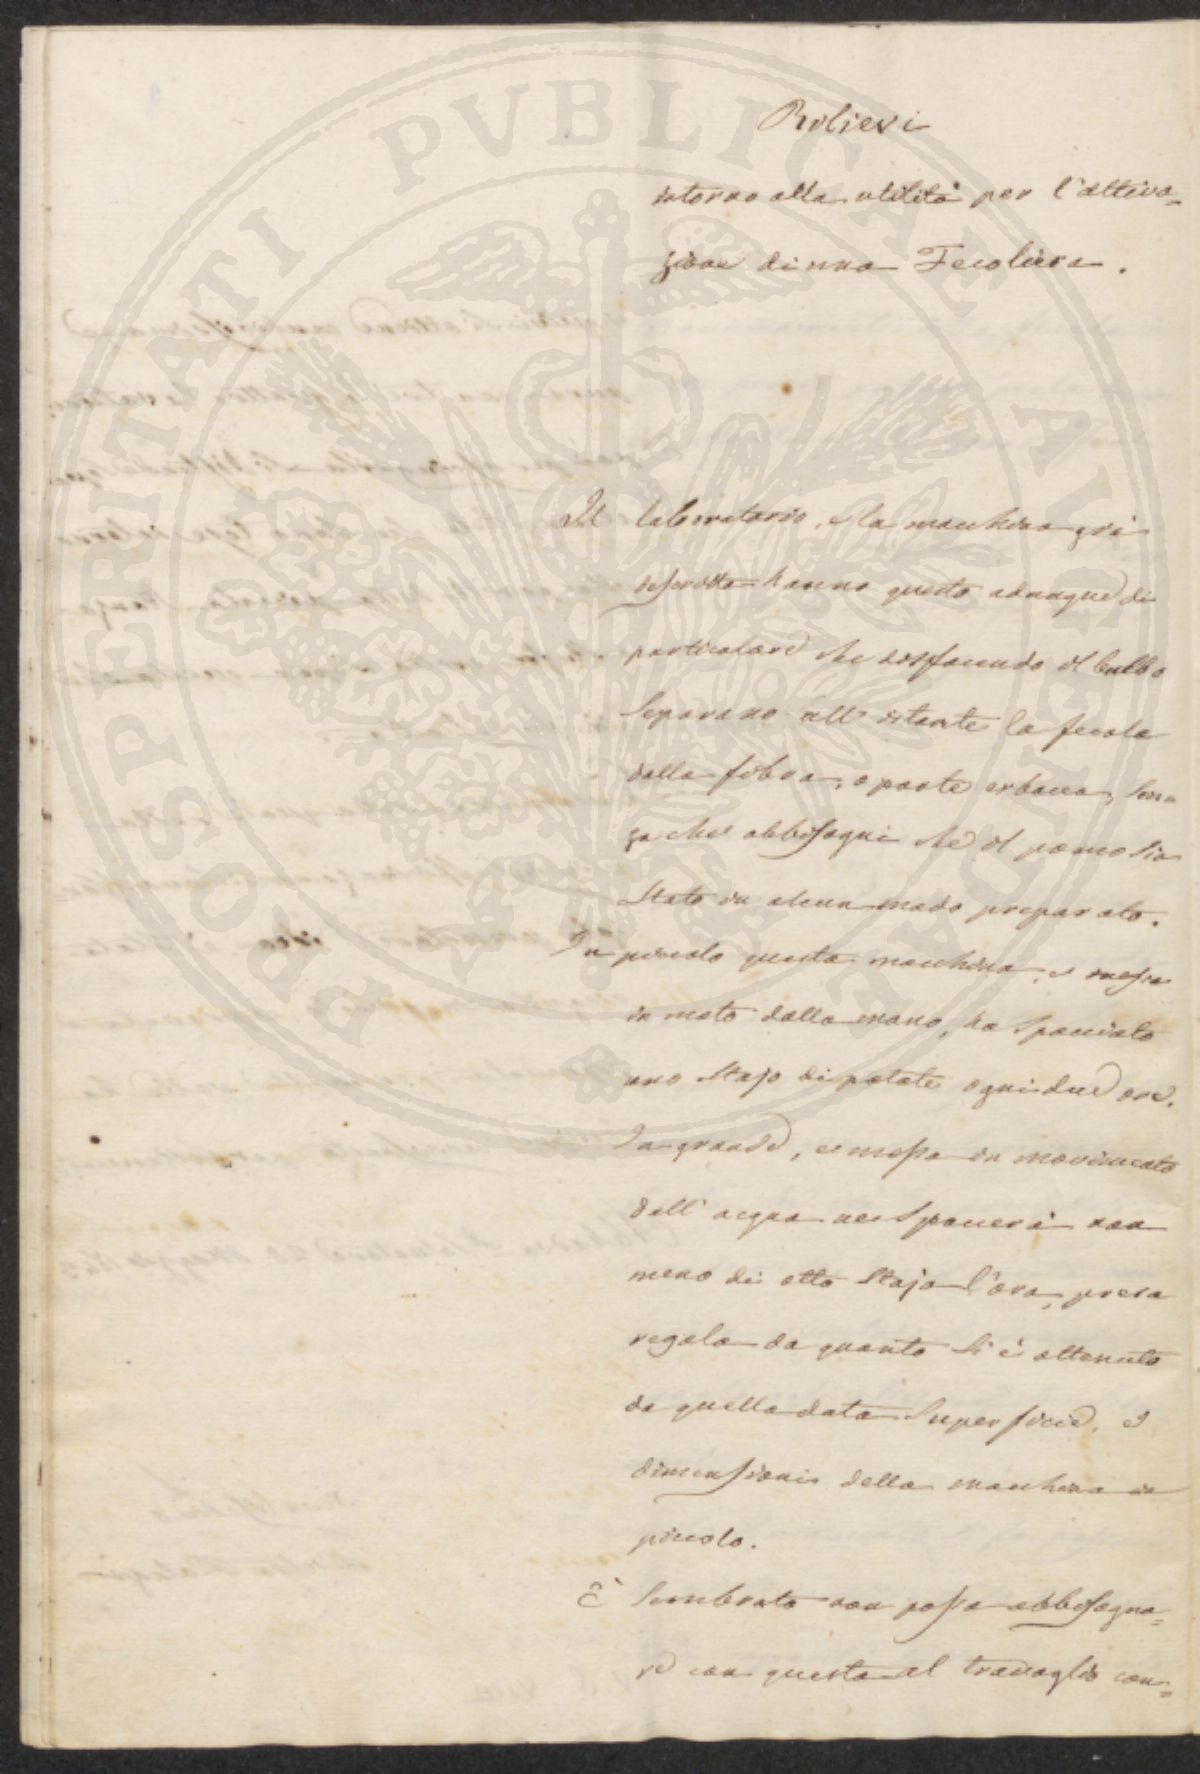 Rilievi
intorno alla utilità per l'attiva=
zione di una Fecoliera.
Il laboratorio, e la macchina già
descritta hanno questo adunque di
particolare che disfacendo il bulbo
Separano all'istante la fecola
dalla fibra, o parte erbacea, Sen=
za che abbisogni che il pomo Sia
Stato in alcun modo preparato.
In piccolo questa macchina, e messa
in moto dalla mano, ha Spacciato
uno Stajo di patate ogni due ore.
In grande, e messa in movimento
dall'acqua ne Spaccerà non
meno di otto Staja l'ora, presa
regola da quanto Si è ottenuto
da quella data Superficie, e
dimensioni della macchina in
piccolo.
È Sembrato non possa abbisogna=
re con questa al travaglio con=
PROSPERITATI PVBLICAE AVGENDAE